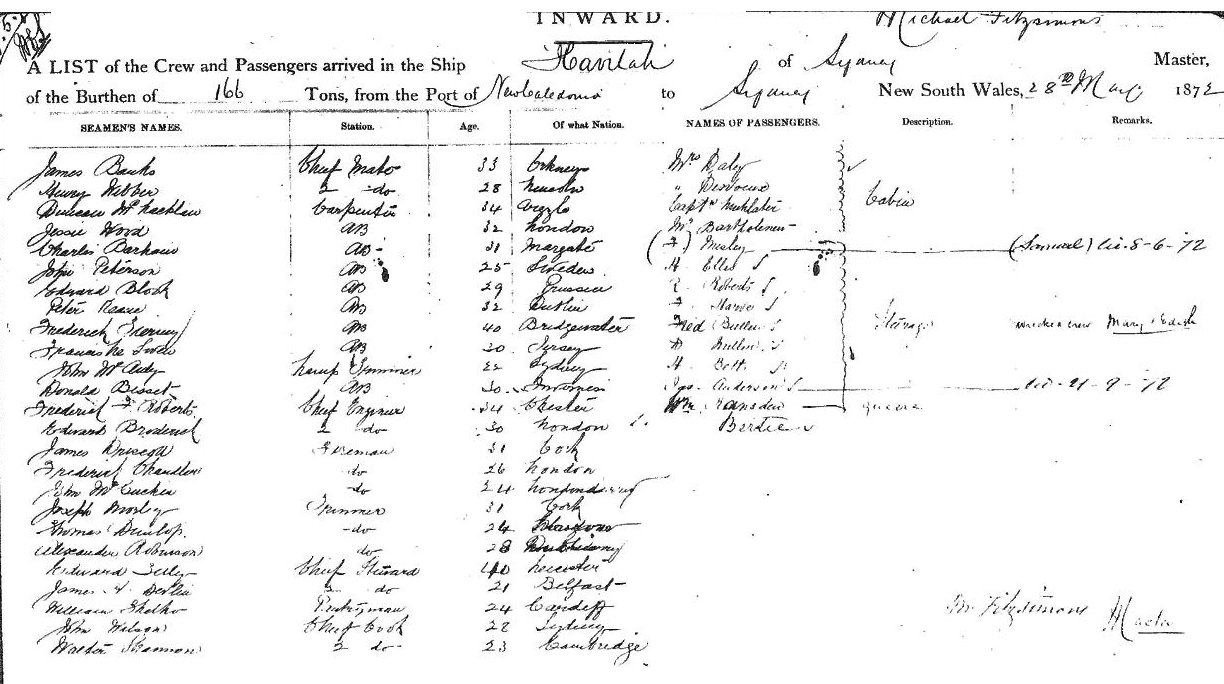 INWARD.
Michael Fitzsimons
A LIST of the Crew and Passengers arrived in the Ship Havilah of Sydney Master,
of the Burthen of 166 Tons, from the Port of New Caledonia to Sydney New South Wales, 28th May 1872
SEAMEN'S NAMES. Station. Age. Of what Nation. NAMES OF PASSENGERS. Description. Remarks.
James Banks Chief Mate 33 Orkneys Mrs Daley
Henry Webber 2 do 28 Lincoln " Cabin
Duncan 34 Captn
Carpenter
Jessie Wood AB 32 London Mr Bartholomew
Charles Barham AB 31 Margate (F) Mosley (Samuel) lic 8-6-72
John Peterson AB 25 Sweden H Ellis S
Edward Block AB 29 Prussia R Roberts S
Peter AB 32 Dublin F S
Frederick AB 40 Bridgewater Fred Butler S Steerage wrecked crew Mary & Edith
AB 30 Jersey S
John 22 Sydney H S
Donald Bisset AB 30 Inverness Jas Anderson S lic 21-9-72
Frederick F Roberts Chief Engineer 34 Chester Wm Ramsden
Edward Broderick 2 do 30 London Bertie
James Driscoll Fireman 31 Cork
Frederick Chandler do 26 London
John do 24
Joseph Morley Trimmer 31 Cork
Thomas Dunlop do 24
Alexander Robinson do 28
Edward Chief Steward 40 Leicester
James A Devlin 2 do 21 Belfast
William Pantryman 24 Cardiff
John Wilson Chief Cook 22 Sydney
Walter Shannon 2 do 23 Cambridge
M Fitzsimons Master